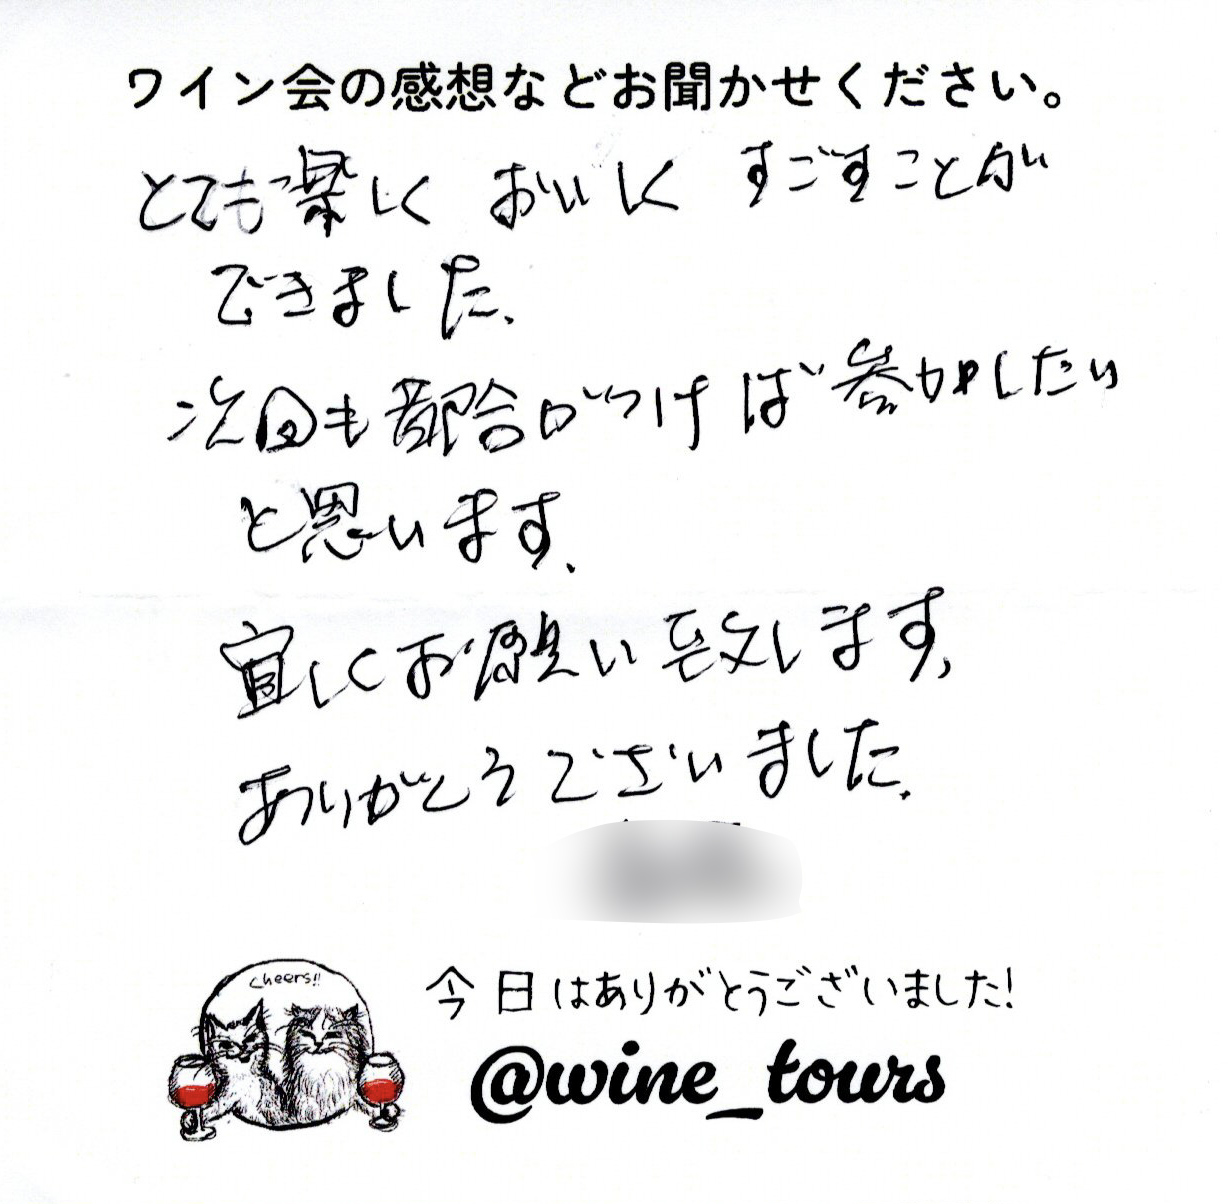 ワイン会の感想などお聞かせください。
とても楽しく おいしく すごすことが
できました。
次回も都合がつけば参加したい
と思います。
宜しくお願い致します。
ありがとうございました。
cheers!!
今日はありがとうございました!
@wine_tours